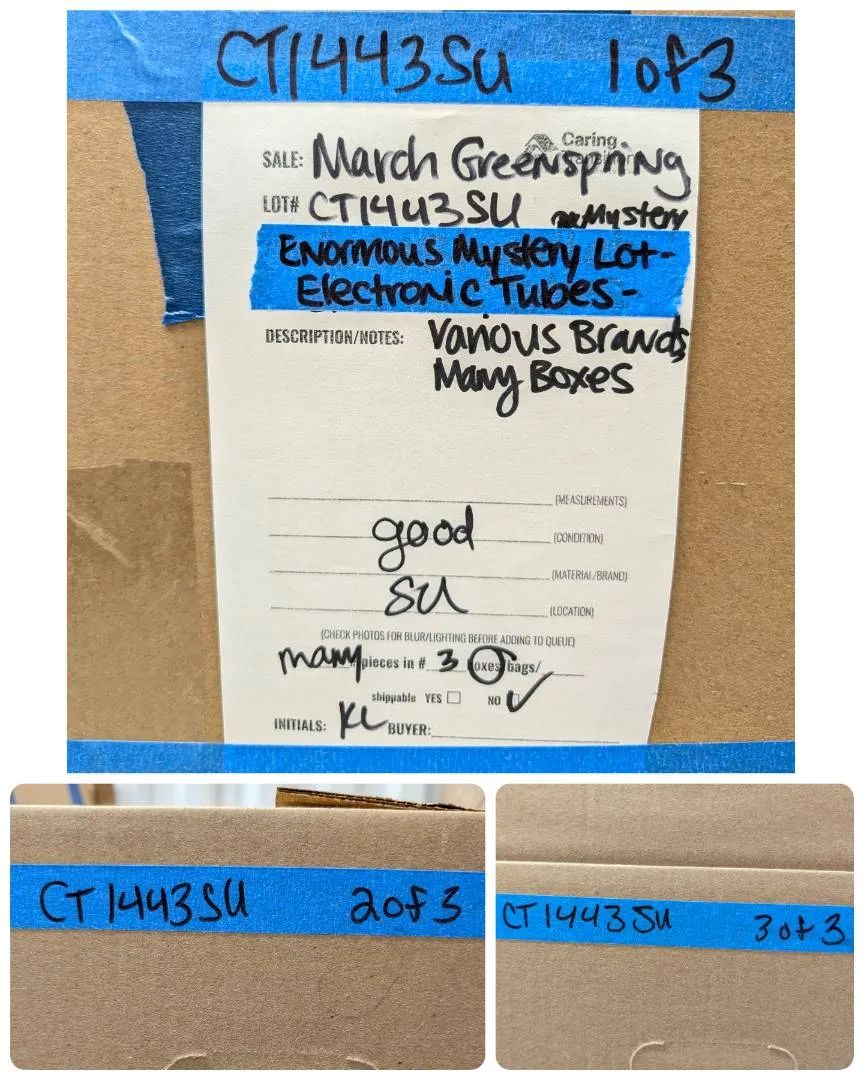 CT1443SU 1 of 3
Caring
SALE: March Greenspring
LOT# CT1443SU Mystery
Enormous Mystery Lot-
Electronic Tubes-
DESCRIPTION/NOTES: Various Brands,
Many Boxes
(MEASUREMENTS)
good (CONDITION)
(MATERIAL/BRAND)
SU (LOCATION)
(CHECK PHOTOS FOR BLUR/LIGHTING BEFORE ADDING TO QUEUE)
many pieces in # 3 boxes/bags/
shippable YES NO
INITIALS: KL BUYER:
CT1443SU 2 of 3
CT1443SU 3 of 3